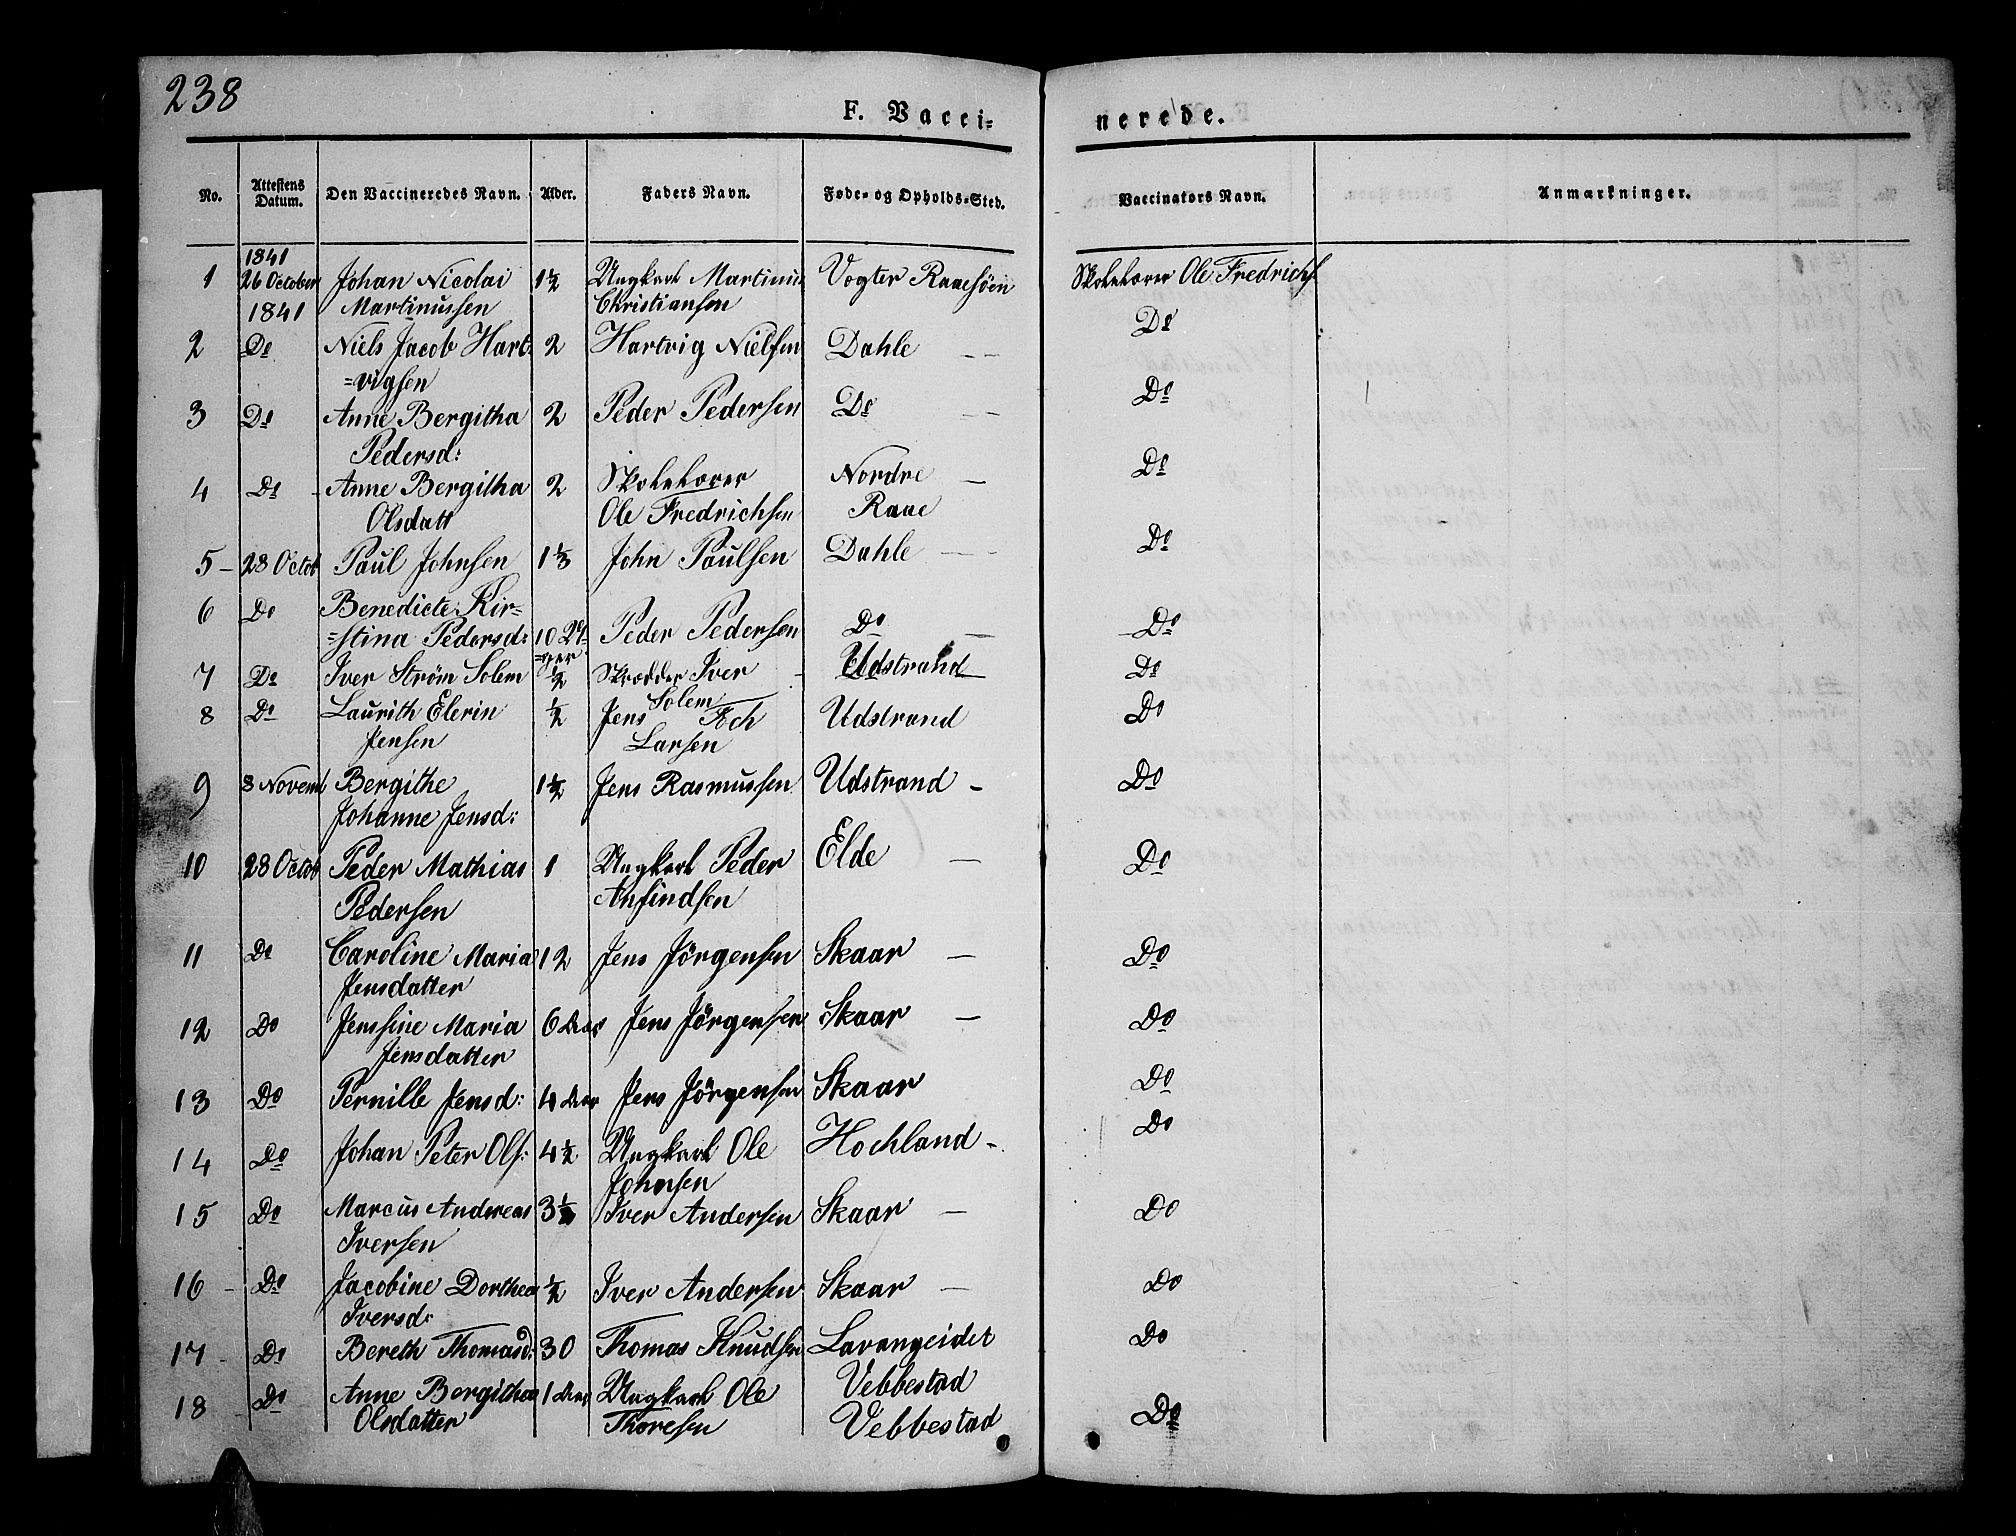 238
F. Vacci=
nerede.
No. Attestens Datum. Den Vaccineredes Navn. Alder. Faders Navn. Føde= og Opholds=Sted. Vaccinators Navn. Anmærkninger.
1841
1 26 October Johan Nicolai 1½ Ungkarl Martinus Vogter Raaesøen Skolelærer Ole Fredrichs
1841 Martinussen Christiansen
2 Do Niels Jacob Hart= 2 Hartvig Nielsen Dahle — Do
=vigsen
3 Do Anne Bergitha 2 Peder Pedersen Do — Do
Pedersd:
4 Do Anne Bergitha 2 Skolelærer Nordre — Do
Olsdatt Ole Fredrichsen Raae
5 28 Octob Paul Johnsen 1⅓ John Paulsen Dahle — Do
6 Do Benedicte Kir=
=stina Pedersd: 10 Peder Pedersen Do — Do
7 Do Iver Strøm Solem ½ Skrædder Iver Udstrand Do
Solem
8 Do Laurith Elerin ½ Jens Foch Udstrand Do
Jensen Larsen
9 8 Novemb Bergithe 1½ Jens Rasmussen Udstrand - Do
Johanne Jensd:
10 28 Octob Peder Mathias 1 Ungkarl Peder Elde — Do
Pedersen Anfindsen
11 Do Caroline Maria 12 Jens Jörgensen Skaar — Do
Jensdatter
12 Do Jenssine Maria 6 Aar Jens Jörgensen Skaar — Do
Jensdatter
13 Do Pernille Jensd: 4 Aar Jens Jörgensen Skaar Do
14 Do Johan Peter Ols: 4½ Ungkarl Ole Hochland - Do
Johnsen
15 Do Marcus Andreas 3½ Iver Andersen Skaar — Do
Iversen
16 - Do Jacobine Dorthea ½ Iver Andersen Skaar — Do
Iversd:
17 - Do Bereth Thomasd: 30 Thomas Knudsen Lavangeidet Do
18 Do Anne Bergitha 1 Aar Ungkarl Ole Vebbestad Do
Olsdatter Thoresen Vebbestad